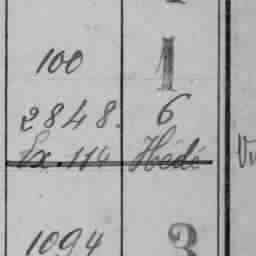 100 1
2848. 6
Ex. 114 Hédé
1094 3